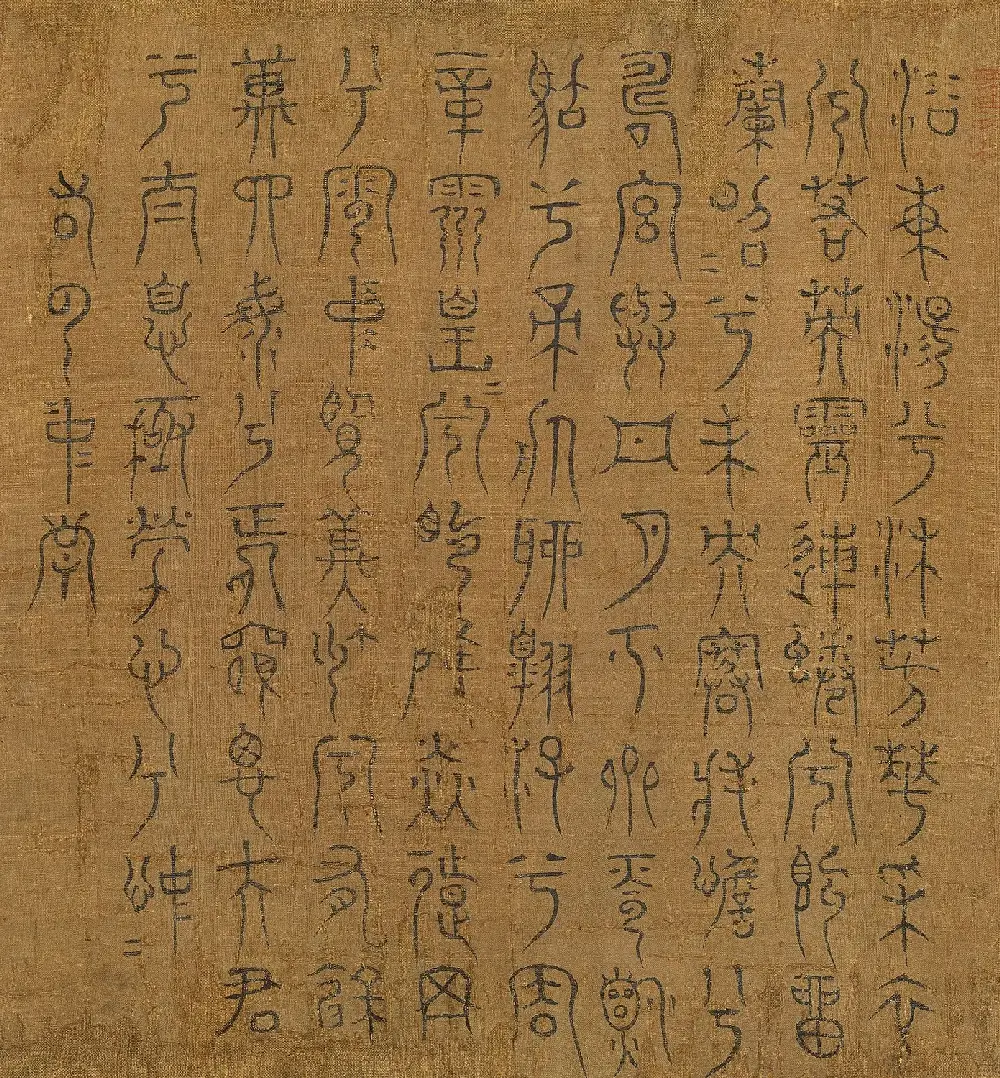 浴蘭湯兮沐芳華采衣
兮若英靈連蜷兮既留
爛昭昭兮未央蹇將憺兮
壽宮與日月兮齊光龍
駕兮帝服聊翱遊兮周
章靈皇皇兮既降猋遠舉
兮雲中覽冀州兮有餘
橫四海兮焉窮思夫君
兮太息極勞心兮忡忡
右雲中君